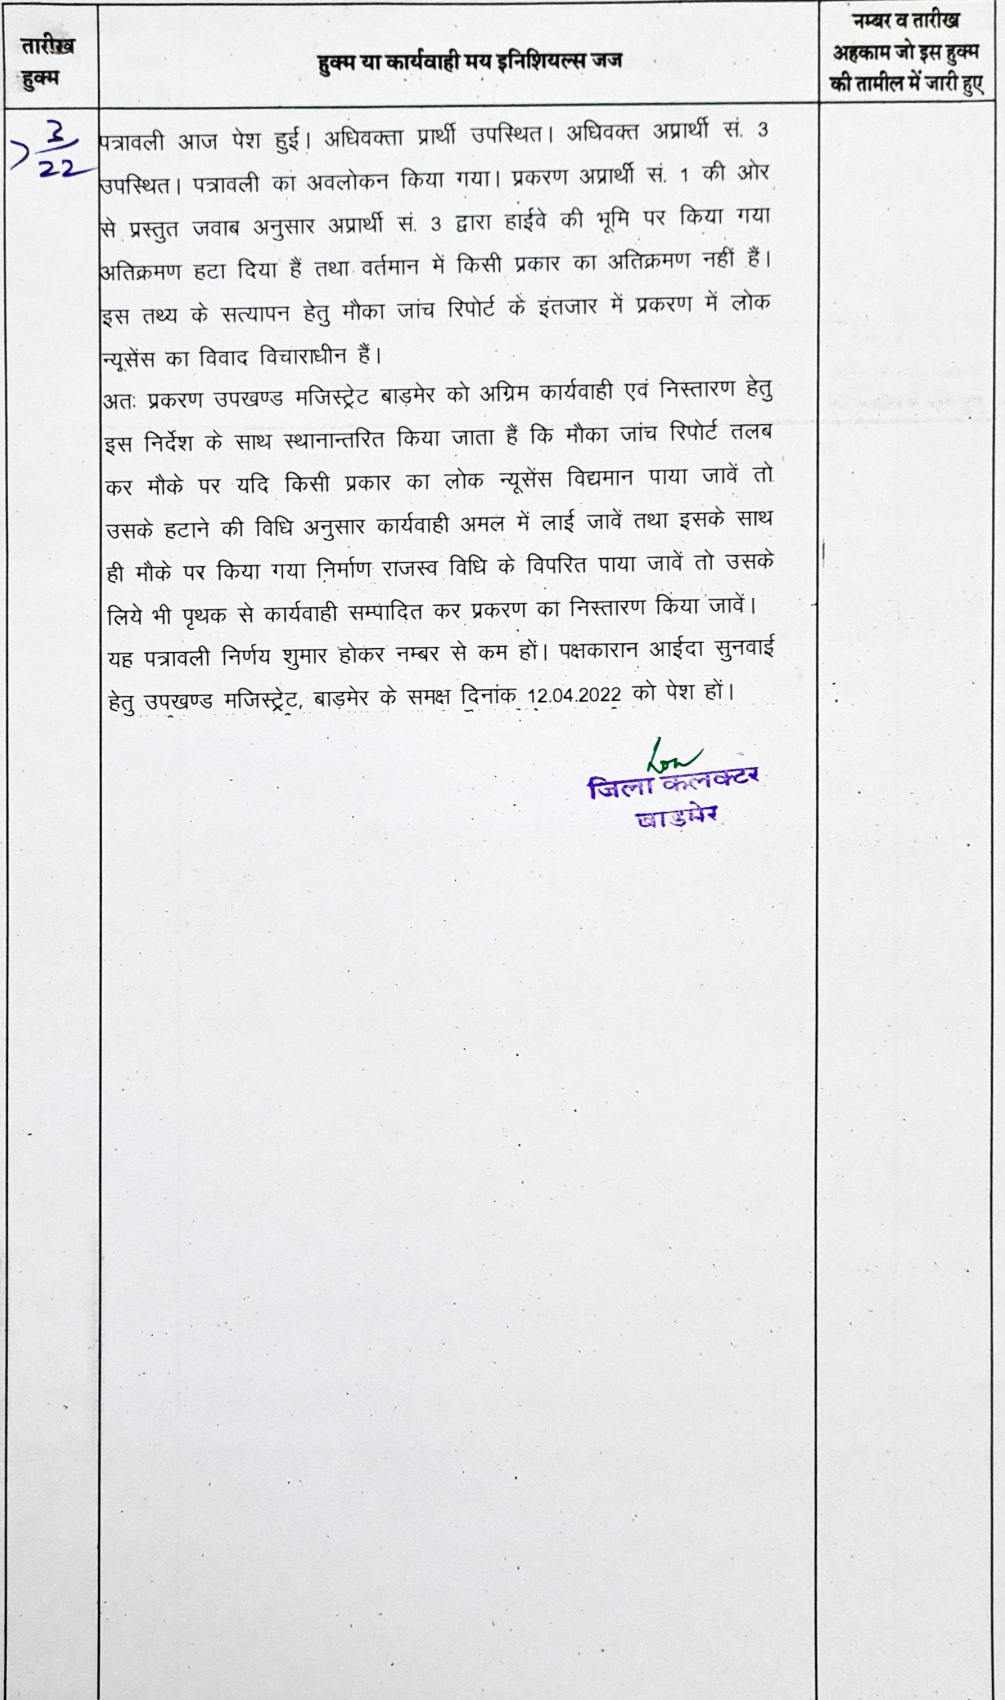 तारीख
हुक्म
हुक्म या कार्यवाही मय इनिशियल्स जज
नम्बर व तारीख
अहकाम जो इस हुक्म
की तामील में जारी हुए
3/22
पत्रावली आज पेश हुई। अधिवक्ता प्रार्थी उपस्थित। अधिवक्त अप्रार्थी सं. 3
उपस्थित। पत्रावली का अवलोकन किया गया। प्रकरण अप्रार्थी सं. 1 की ओर
से प्रस्तुत जवाब अनुसार अप्रार्थी सं. 3 द्वारा हाईवे की भूमि पर किया गया
अतिक्रमण हटा दिया हैं तथा वर्तमान में किसी प्रकार का अतिक्रमण नहीं हैं।
इस तथ्य के सत्यापन हेतु मौका जांच रिपोर्ट के इंतजार में प्रकरण में लोक
न्यूसेंस का विवाद विचाराधीन हैं।
अतः प्रकरण उपखण्ड मजिस्ट्रेट बाड़मेर को अग्रिम कार्यवाही एवं निस्तारण हेतु
इस निर्देश के साथ स्थानान्तरित किया जाता हैं कि मौका जांच रिपोर्ट तलब
कर मौके पर यदि किसी प्रकार का लोक न्यूसेंस विद्यमान पाया जावें तो
उसके हटाने की विधि अनुसार कार्यवाही अमल में लाई जावें तथा इसके साथ
ही मौके पर किया गया निर्माण राजस्व विधि के विपरित पाया जावें तो उसके
लिये भी पृथक से कार्यवाही सम्पादित कर प्रकरण का निस्तारण किया जावें।
यह पत्रावली निर्णय शुमार होकर नम्बर से कम हों। पक्षकारान आईदा सुनवाई
हेतु उपखण्ड मजिस्ट्रेट, बाड़मेर के समक्ष दिनांक 12.04.2022 को पेश हों।
जिला कलक्टर
बाड़मेर